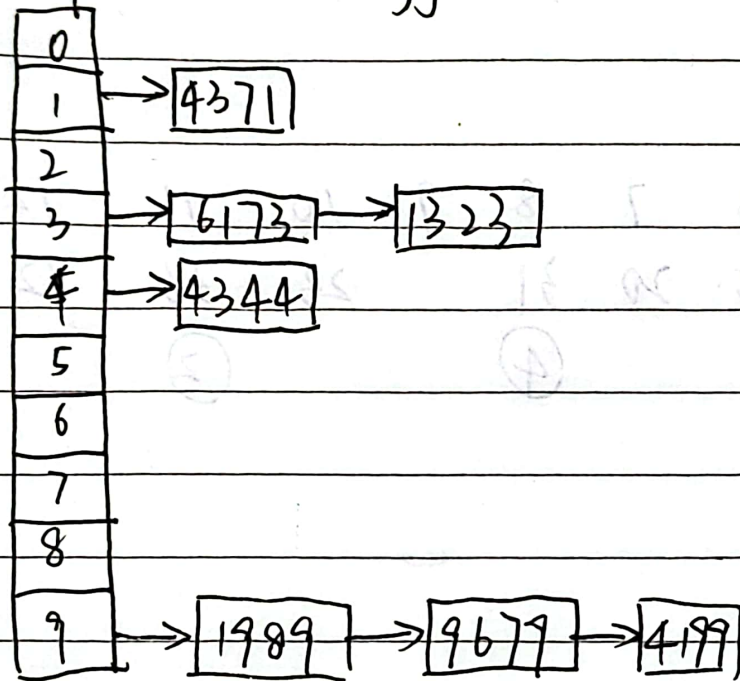 0
1 → 4371
2
3 → 6173 → 1323
4 → 4344
5
6
7
8
9 → 1989 → 9679 → 4199